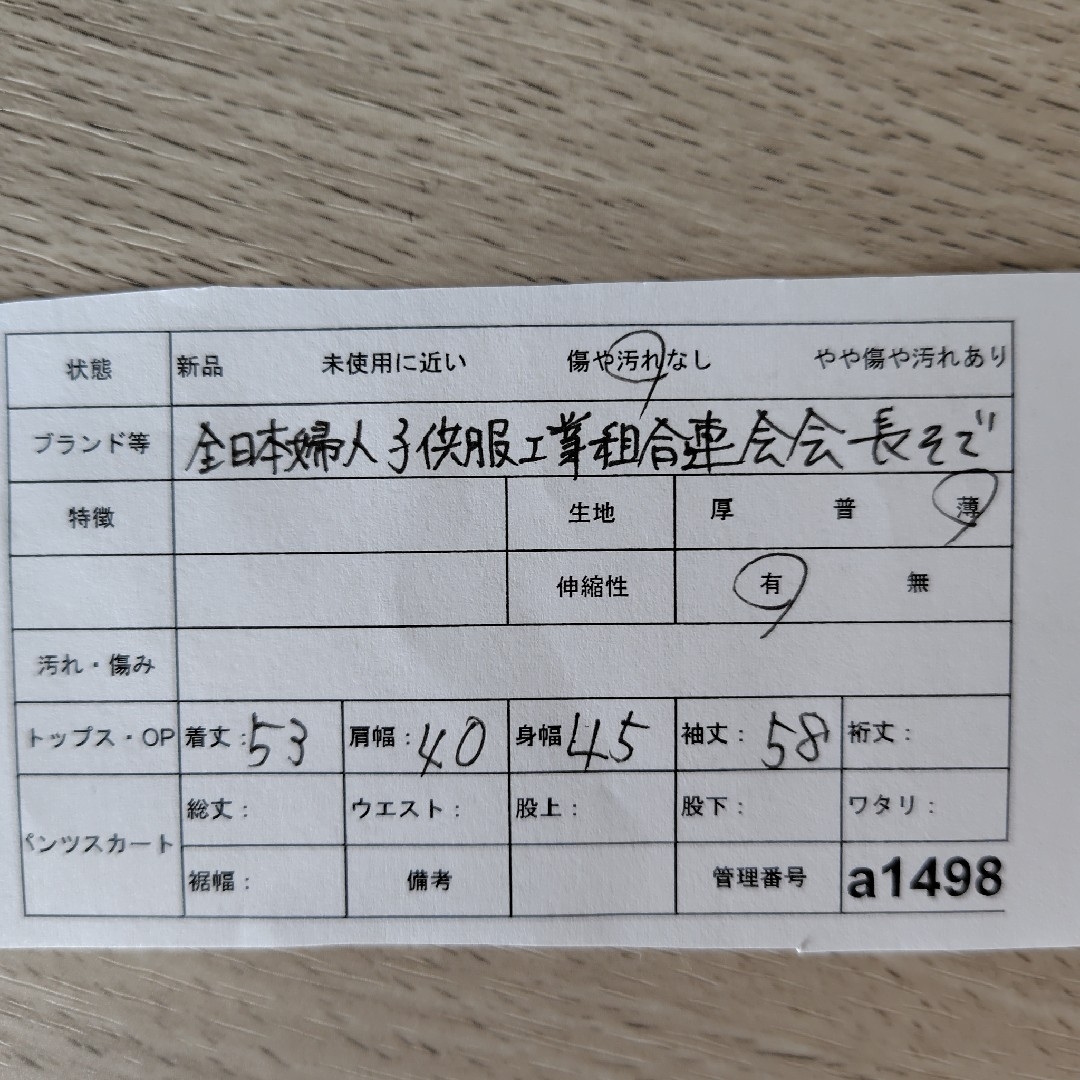 状態 新品 未使用に近い 傷や汚れなし やや傷や汚れあり
ブランド等 全日本婦人子供服工業組合連会会長そで
特徴 生地 厚 普 薄
伸縮性 有 無
汚れ・傷み
トップス・OP 着丈:53 肩幅:40 身幅45 袖丈:58 裄丈:
総丈: ウエスト: 股上: 股下: ワタリ:
パンツスカート
裾幅: 備考 管理番号 a1498